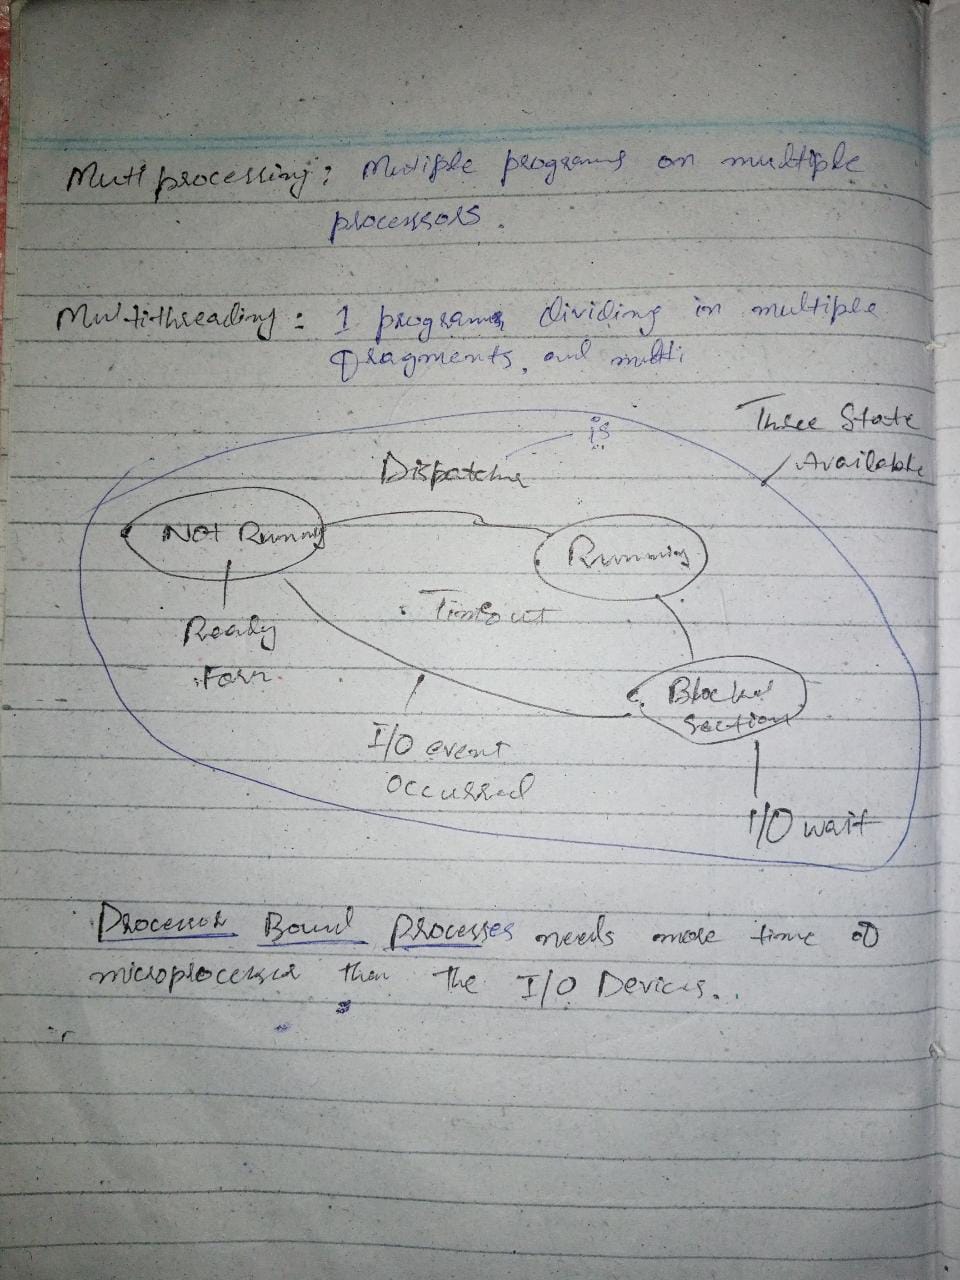 Muti processing: Mutiple programs on multiple
processors.
Multithreading: 1 programs dividing in multiple
fragments, and multi
Three State
Available
is
Dispatche
Not Running
Running
Timeout
Ready
Form
Blocked
Section
I/O event
occurred
I/O wait
Processor Bound Processes needs more time of
microprocessor than the I/O Devices.